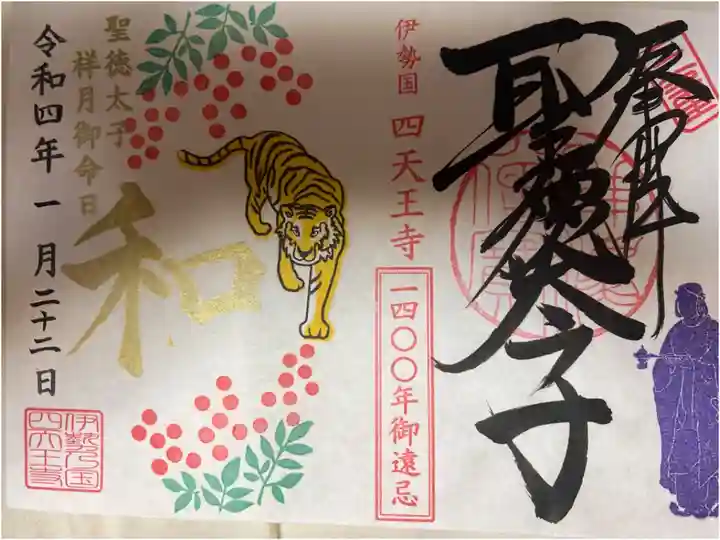 奉拝
聖徳太子
伊勢国 四天王寺
一四〇〇年御遠忌
和
聖徳太子
祥月御命日
令和四年一月二十二日
伊勢乃国
四天王寺